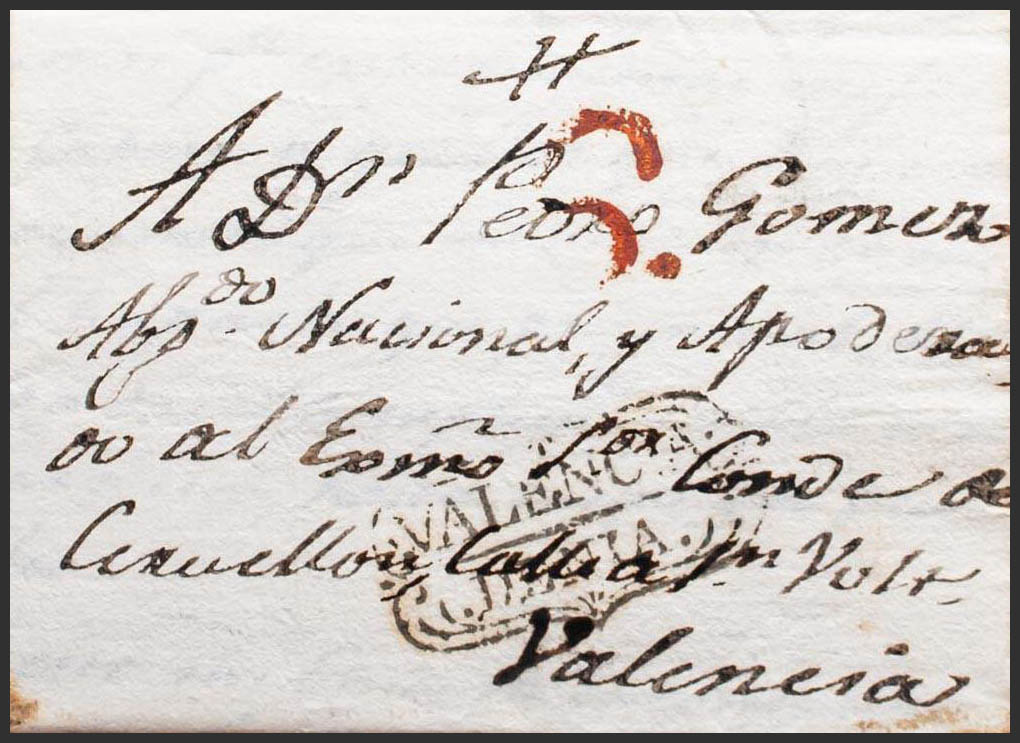 A Dn. Pedro Gomez
Abgdo. Nacional, y Apodera
do al Exmo Sor Conde de
Cervellon, Calle a Sn Volt.
Valencia
5.
VALENCIA.
DENIA.